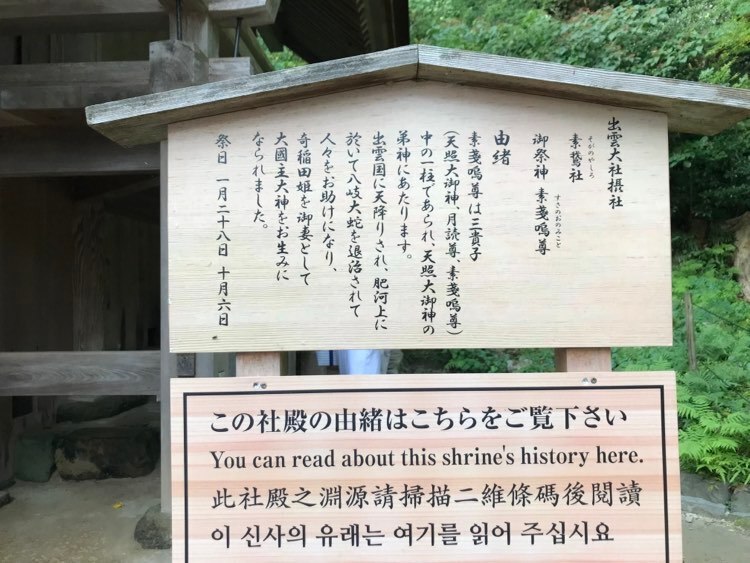 出雲大社摂社
そがのやしろ
素鵞社
すさのおのみこと
御祭神 素戔嗚尊
由緒
素戔嗚尊は三貴子
(天照大御神、月読尊、素戔嗚尊)
中の一柱であられ、天照大御神の
弟神にあたります。
出雲国に天降りされ、肥河上に
於いて八岐大蛇を退治されて
人々をお助けになり、
奇稲田姫を御妻として
大國主大神をお生みに
なられました。
祭日 一月二十八日 十月六日
この社殿の由緒はこちらをご覧下さい
You can read about this shrine's history here.
此社殿之淵源請掃描二維條碼後閱讀
이 신사의 유래는 여기를 읽어 주십시요